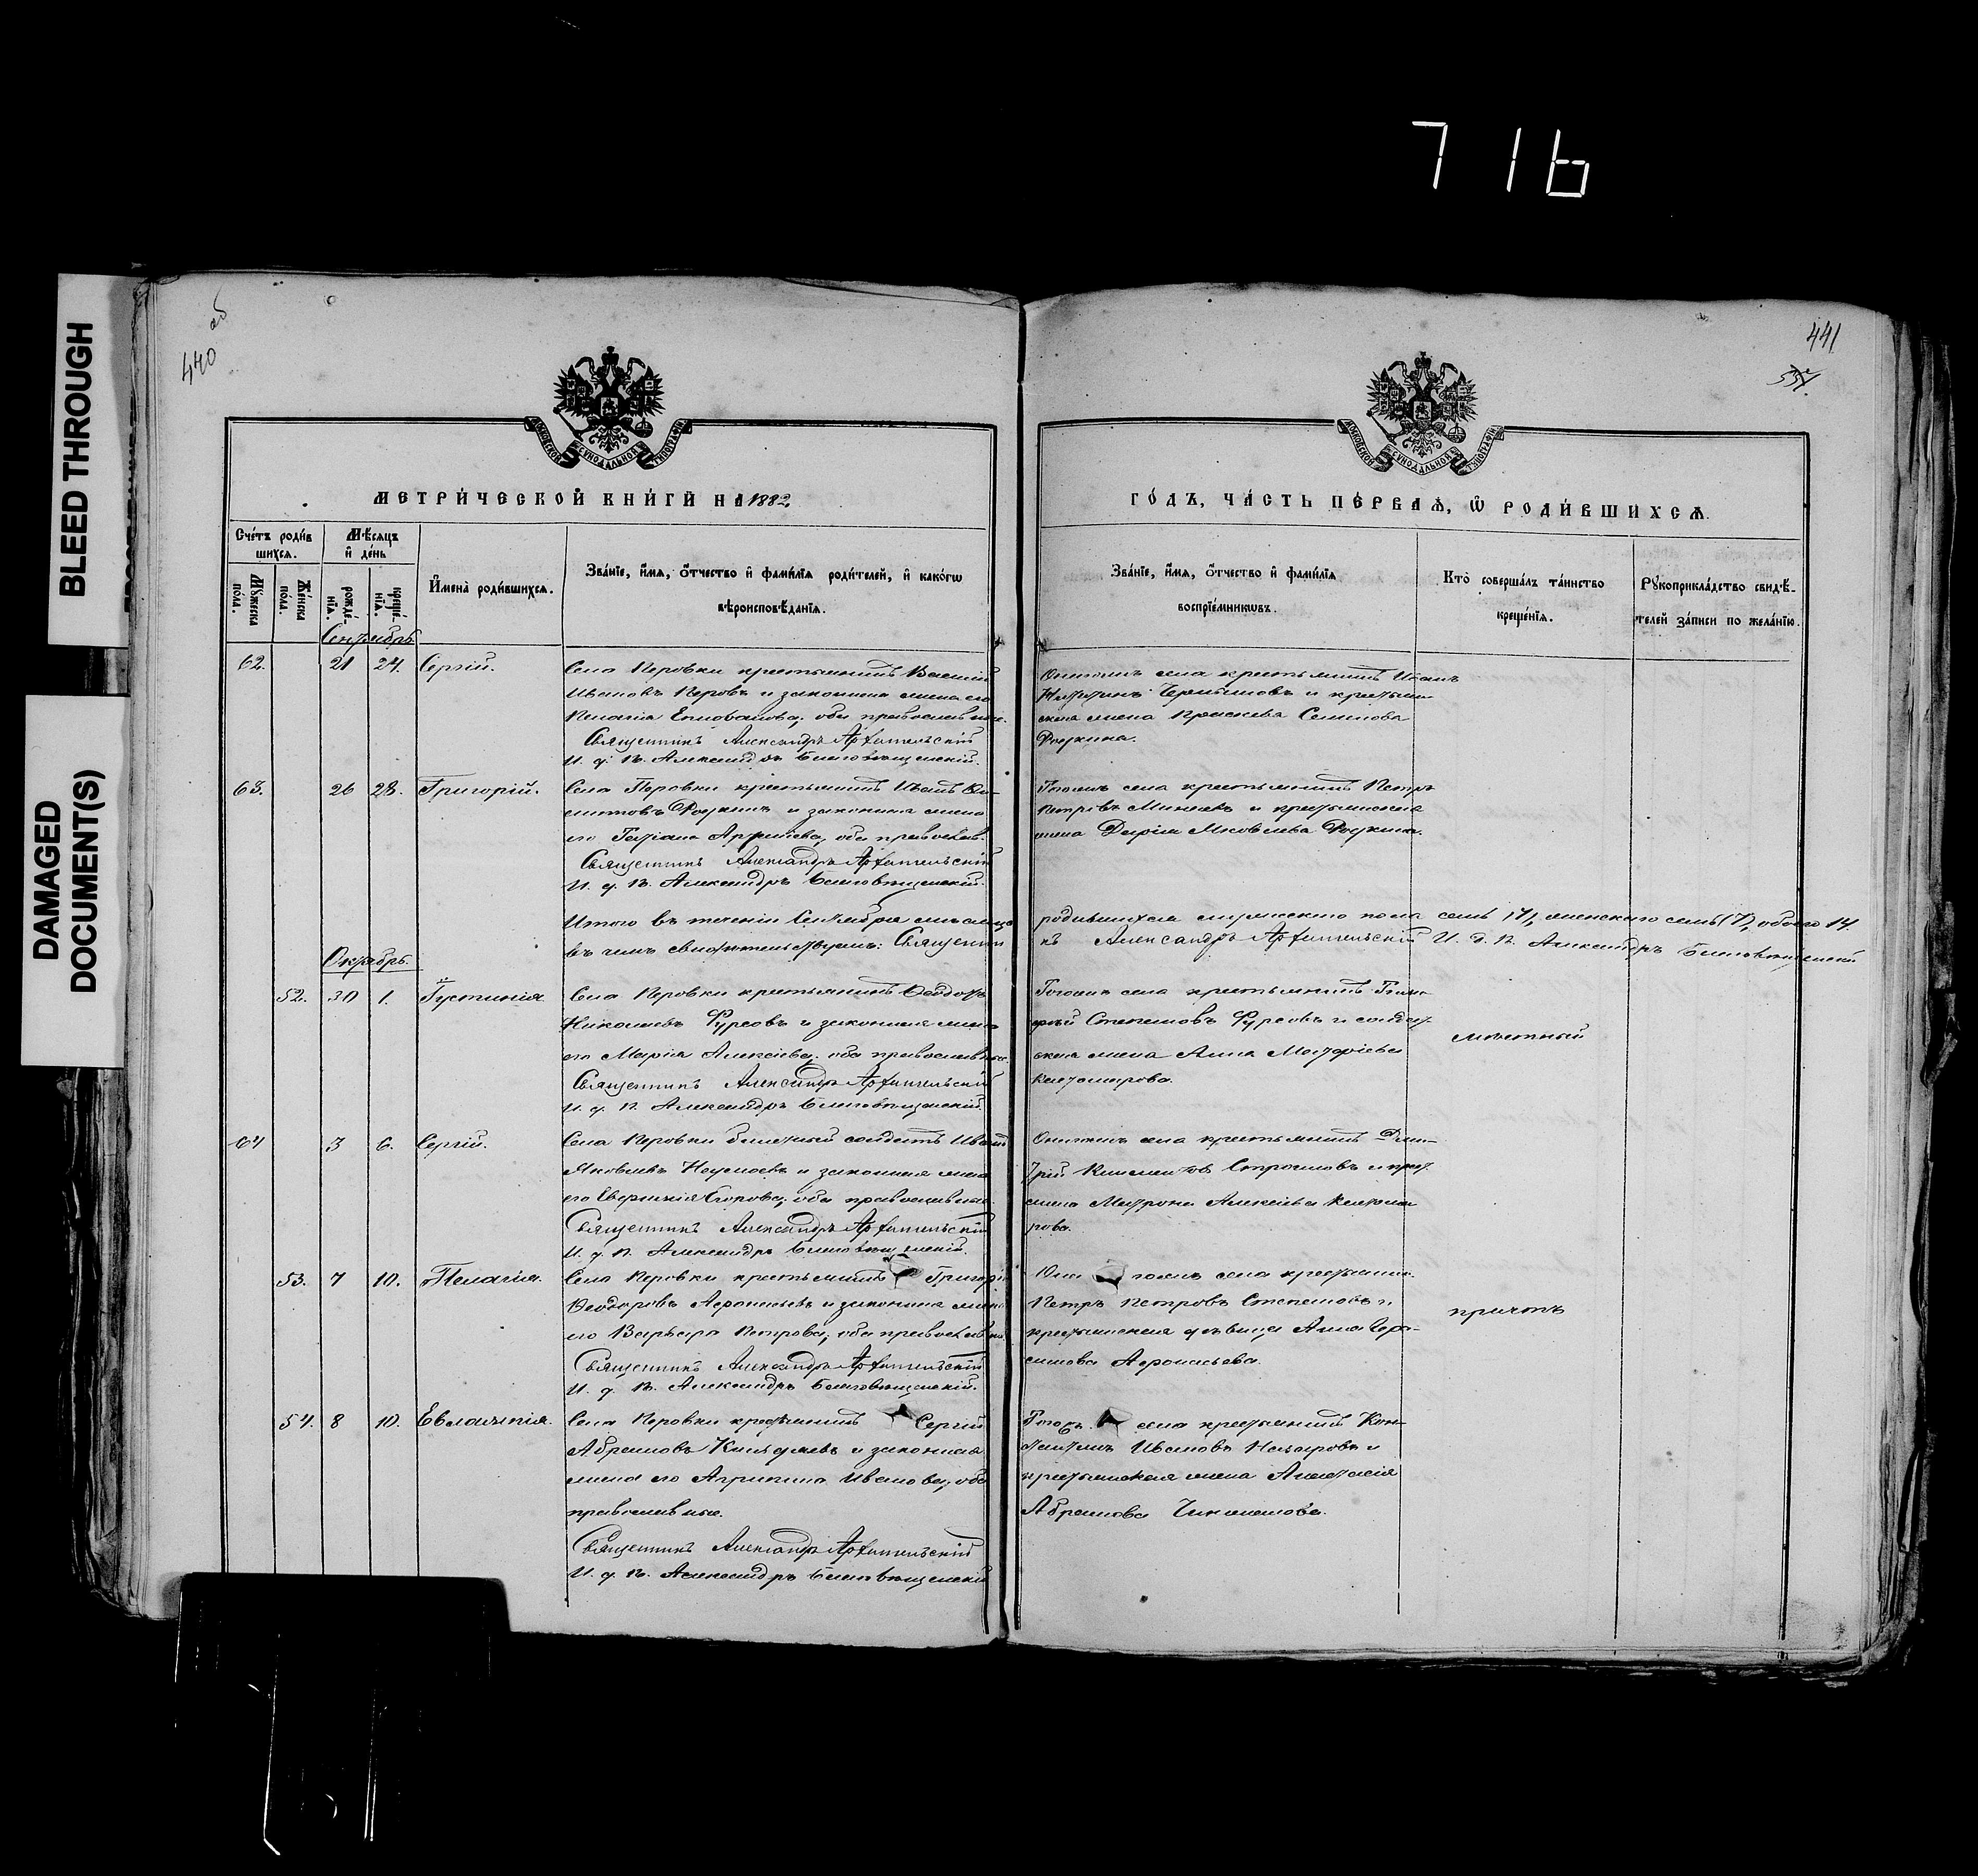 716
BLEED THROUGH
DAMAGED
DOCUMENT(S)
440 об
441
МОСКОВСКОЙ СУНОДАЛЬНОЙ ТИПОГРАФІИ
МОСКОВСКОЙ СУНОДАЛЬНОЙ ТИПОГРАФІИ
МЕТРИ́ЧЕСКОЙ КНИ́ГИ НА 1882
ГО́ДЪ, ЧА́СТЬ ПЕ́РВАѦ, Ѡ РОДИ́ВШИХСѦ.
Сче́тъ роди́в
шихсѧ.
Мꙋ́жеска
по́ла.
Же́нска
по́ла.
Мѣ́сѧцъ
и҆ де́нь
рожде́-
нїѧ.
креще́-
нїѧ.
И҆мена̀ роди́вшихсѧ.
Зва́нїе, и҆́мѧ, ѻ҆́тчество и҆ фами́лїѧ роди́телей, и҆ како́гѡ
вѣроисповѣ́данїѧ.
Зва́нїе, и҆́мѧ, ѻ҆́тчество и҆ фами́лїѧ
воспрїе́мникѡвъ.
Кто̀ соверша́лъ та́инство
креще́нїѧ.
Рꙋкоприкла́дство свидѣ́-
телей за́писи по жела́нїю.
Сентябрь
62. 21 24. Сергій.
Села Перовки крестьянинъ Василій
Ивановъ Перовъ и законная жена его
Пелагія; оба православные.
Священникъ Александръ Архангельскій
И. д. п. Александръ Благовѣщенскій.
села крестьянинъ Иванъ
и крестьян
ская жена Семенова
63. 26 28. Григорій.
Села Перовки крестьянинъ Иванъ
и законная жена
его Татіана; оба православ.
Священникъ Александръ Архангельскій
И. д. п. Александръ Благовѣщенскій.
Тогожъ села крестьянинъ Петръ
Петровъ Минаевъ и крестьянская
жена Дарія Яковлева
Итого въ теченіи Сентября мѣсяца
родившихся мужескаго пола семь (7), женскаго семь (7), обоего 14.
въ чемъ свидѣтельствуемъ: Священни
къ Александръ Архангельскій И. д. п. Александръ Благовѣщенскій
Октябрь.
52. 30 1. Іустинія
Села Перовки крестьянинъ Ѳеодотъ
Николаевъ Фурсовъ и законная жена
его Марія Алексіева; оба православные.
Священникъ Александръ Архангельскій
И. д. п. Александръ Благовѣщенскій.
Тогожъ села крестьянинъ
Степановъ Фурсовъ и солдат
ская жена Анна
мѣстный
64 3 6. Сергій.
Села Перовки билетный солдатъ Иванъ
Яковлевъ Наумовъ и законная жена
его Егорова; оба православные.
Священникъ Александръ Архангельскій
И. д. п. Александръ Благовѣщенскій.
села крестьянинъ Дми-
трій Климентов и крест.
жена Матрона Алексіева
рова.
53. 7 10. Пелагія.
Села Перовки крестьянинъ Григорій
Ѳеодоровъ Афонасьевъ и законная жена
его Варвара Петрова; оба православные.
Священникъ Александръ Архангельскій
И. д. п. Александръ Благовѣщенскій.
села крестьянинъ
Петръ Петровъ Степановъ и
крестьянская дѣвица Анна Гера-
симова Афонасьева.
причтъ
54. 8 10. Евлампія.
Села Перовки крестьянинъ Сергій
Абрамовъ и законная
жена его Агрипина Иванова; оба
православные.
Священникъ Александръ Архангельскій
И. д. п. Александръ Благовѣщенскій
села крестьянинъ Кон-
стантинъ Ивановъ Назаровъ и
крестьянская жена Анастасія
Абрамова